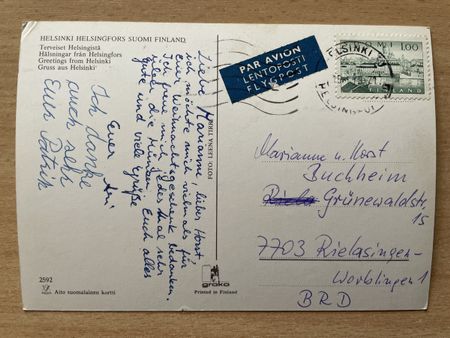 HELSINKI HELSINGFORS SUOMI FINLAND
Terveiset Helsingistä
Hälsningar från Helsingfors
Greetings from Helsinki
Gruss aus Helsinki
Liebe Marianne, lieber Horst
ich möchte mich vielmals für
Euer Weihnachtsgeschenk bedanken.
Ich freue mich jedes Mal sehr
Euch alles
Gute und viele Grüße
Euer
Ich danke
auch sehr
Euer Patrik
FOTO: LEENA TIRRI
PAR AVION
LENTOPOSTI
FLYGPOST
HELSINKI
HELSINGFORS
1.00
FINLAND
Marianne u. Horst
Buchheim
Grünewaldstr.
15
7703 Rielasingen-
Worblingen 1
BRD
2592
Aito suomalainen kortti
grako
Printed in Finland